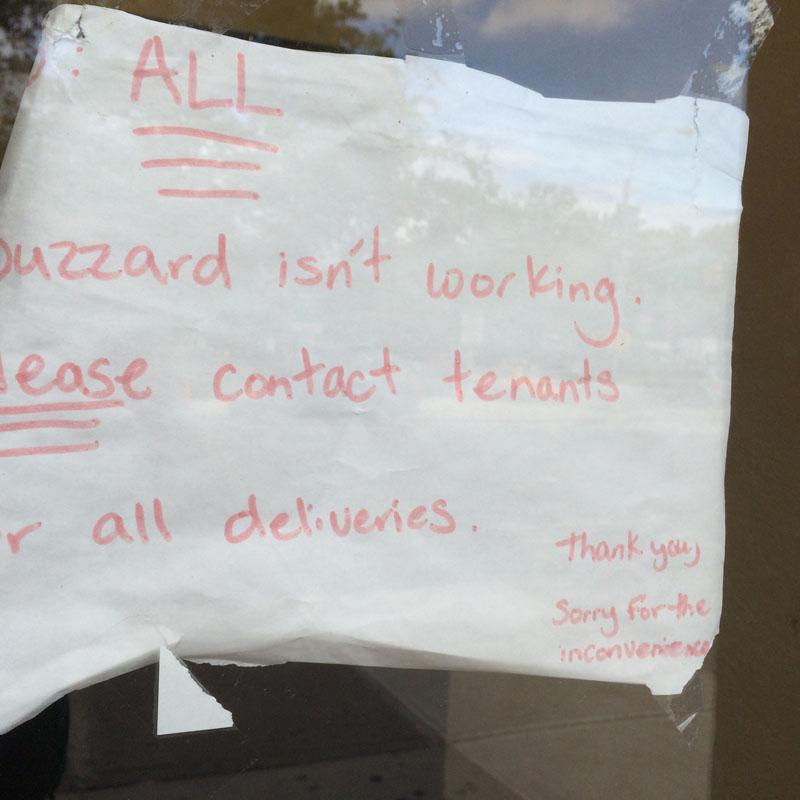 : ALL
buzzard isn't working.
lease contact tenants
r all deliveries.
thank you,
Sorry for the
inconvenience